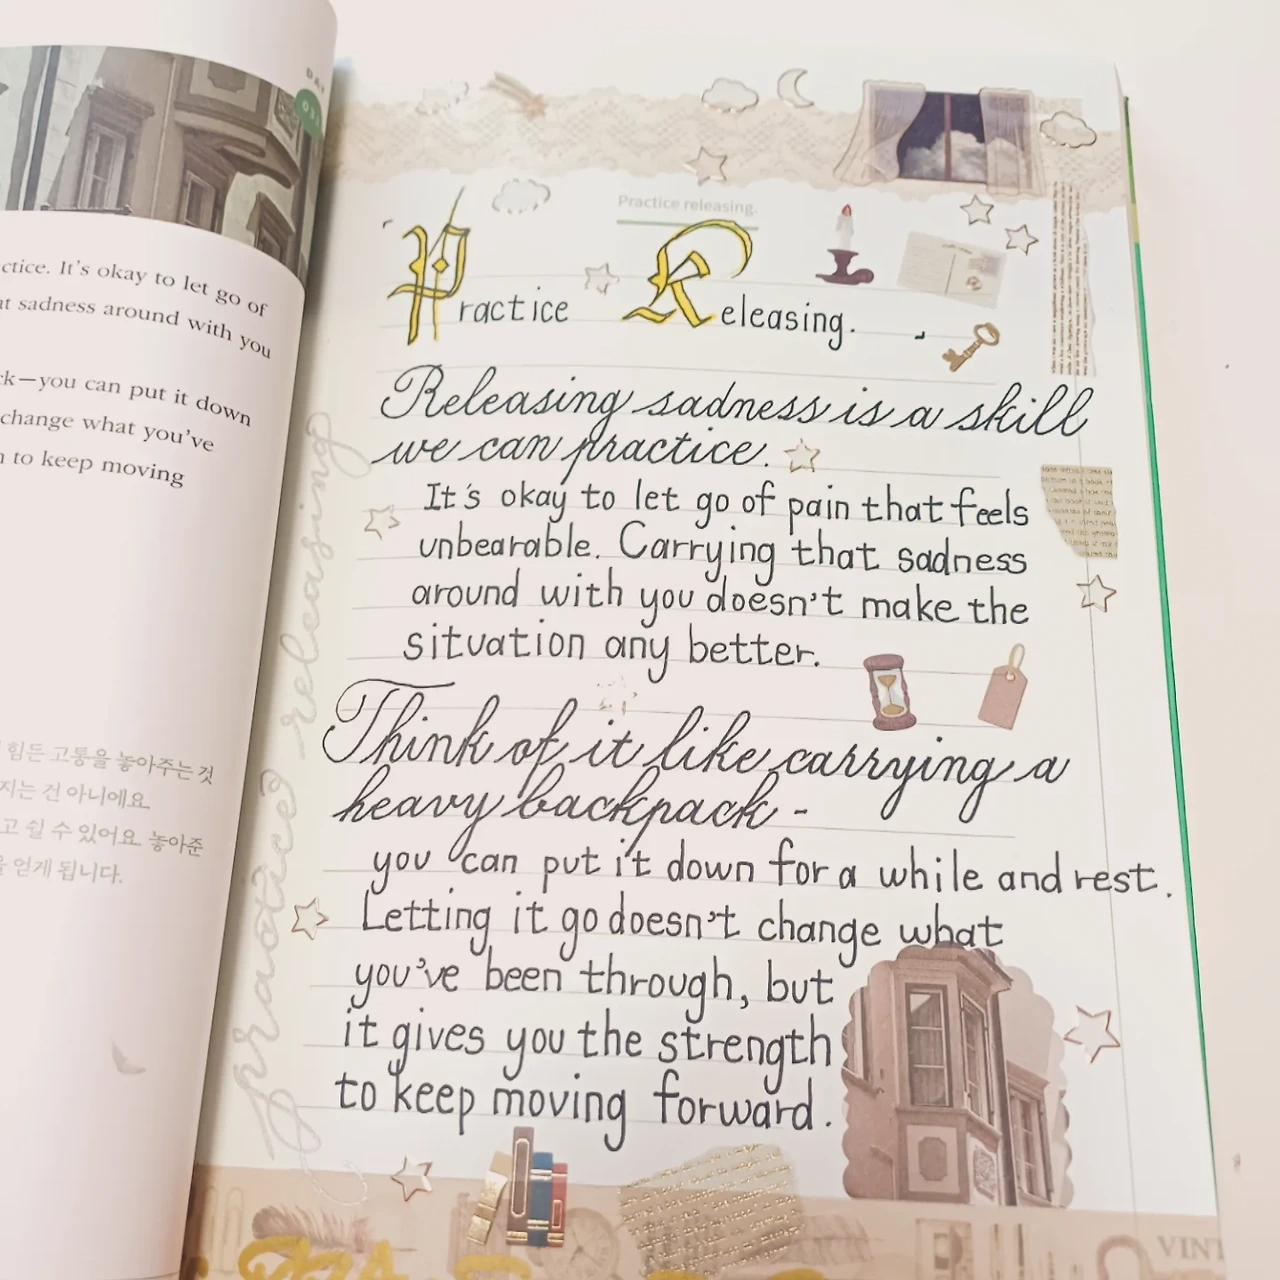 DAY
ctice. It's okay to let go of
t sadness around with you
ck—you can put it down
change what you've
to keep moving
힘든 고통을 놓아주는 것
지는 건 아니에요.
고 쉴 수 있어요. 놓아준
을 얻게 됩니다.
practice releasing
Practice releasing.
Practice Releasing.
Releasing sadness is a skill
we can practice.
It's okay to let go of pain that feels
unbearable. Carrying that sadness
around with you doesn't make the
situation any better.
Think of it like carrying a
heavy backpack -
you can put it down for a while and rest.
Letting it go doesn't change what
you've been through, but
it gives you the strength
to keep moving forward.
VINT